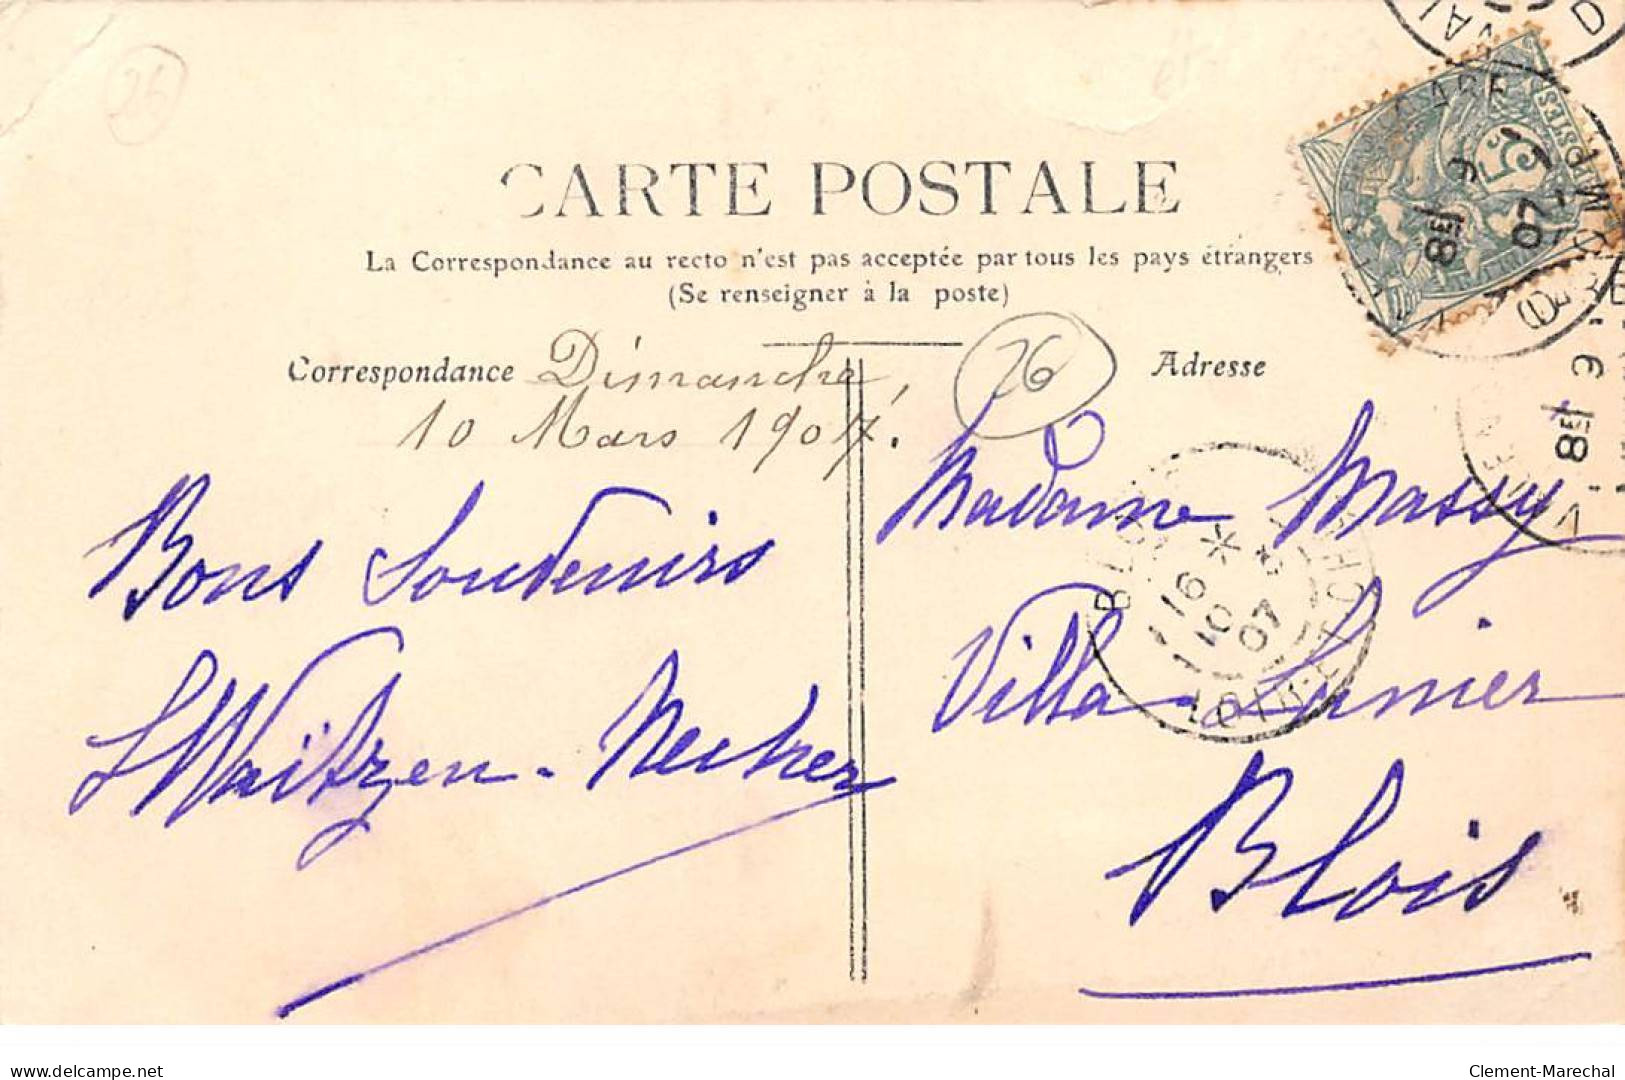 26
CARTE POSTALE
La Correspondance au recto n'est pas acceptée par tous les pays étrangers
(Se renseigner à la poste)
Correspondance
Dimanche,
10 Mars 1907.
Bons Souvenirs
26
Adresse
Madame Massy
Villa Lunier
Blois
5
POSTES
BLOIS
16 *
10 3
07
LOIR-ET-CHER
8E
9
07
8E
9
delcampe.net
Clement-Marechal